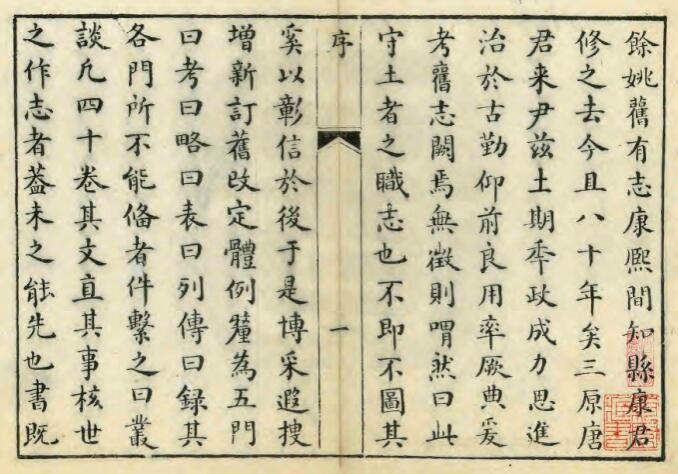 餘姚舊有志康熙間知縣康君
修之去今且八十年矣三原唐
君来尹兹土期秊政成力思進
治於古勤仰前良用率厥典爰
考舊志闕焉無徴則喟然曰此
守土者之職志也不即不圖其
序
一
奚以彰信於後于是博采遐搜
增新訂舊改定體例釐為五門
曰考曰略曰表曰列傳曰録其
各門所不能俻者件繫之曰叢
談凡四十卷其文直其事核世
之作志者葢未之能先也書既